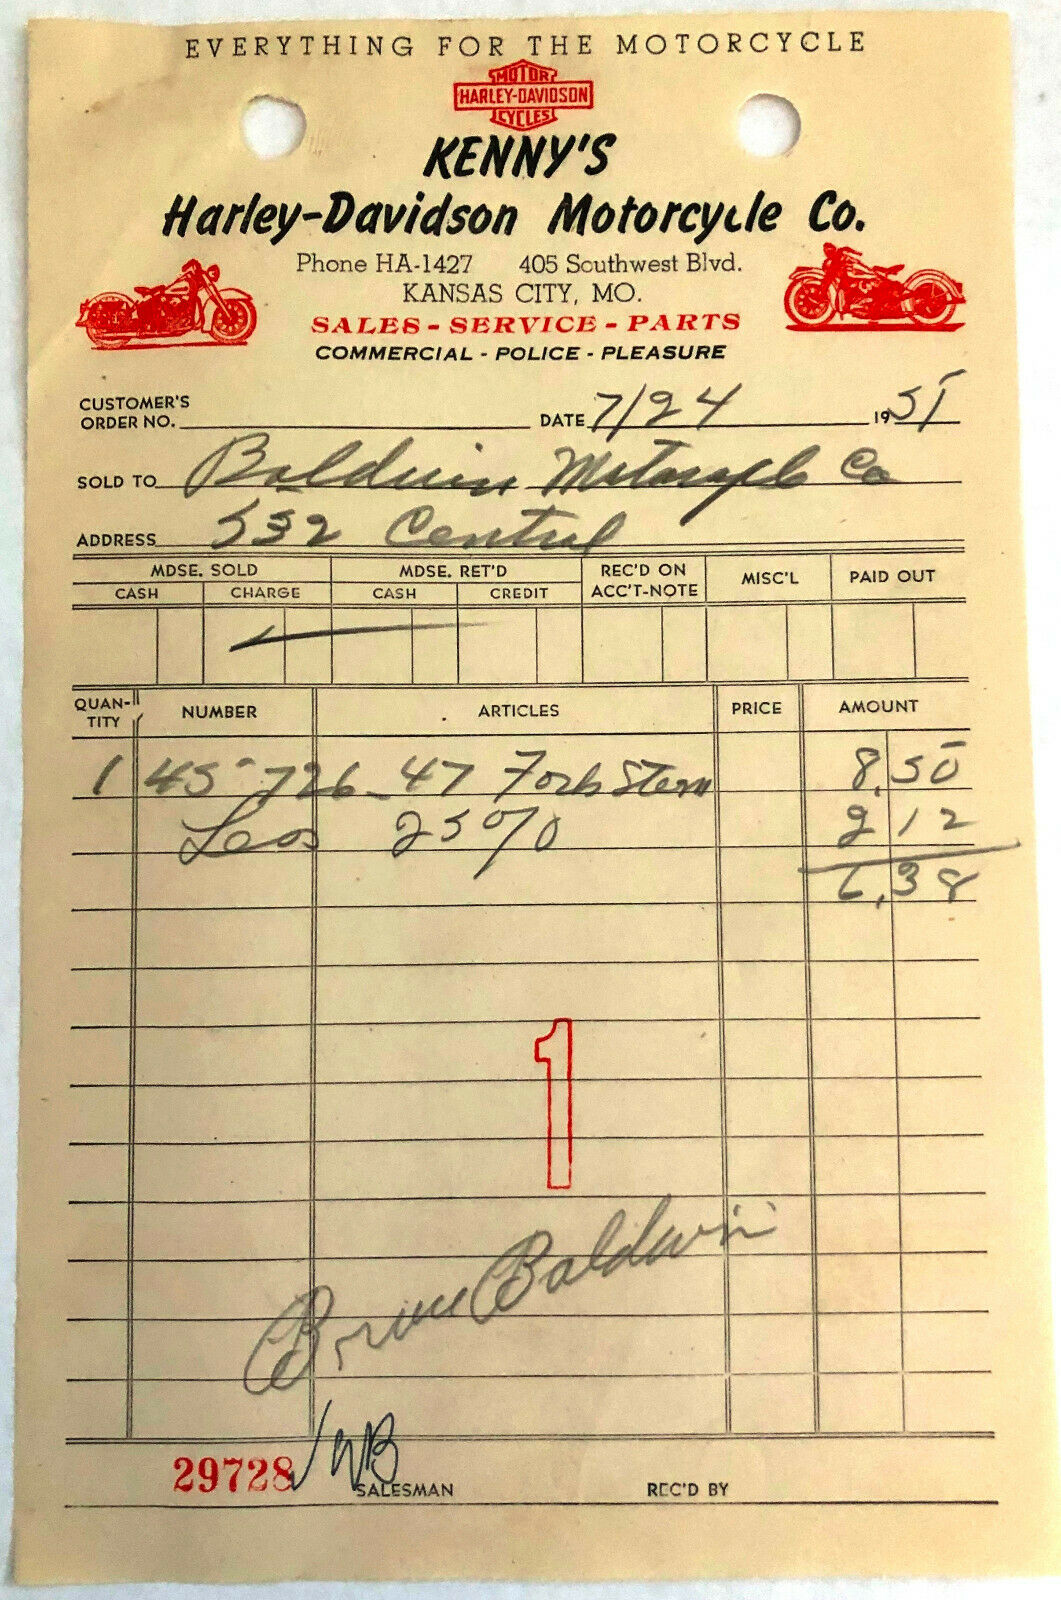 EVERYTHING FOR THE MOTORCYCLE
MOTOR
HARLEY-DAVIDSON
CYCLES
KENNY'S
Harley-Davidson Motorcycle Co.
Phone HA-1427 405 Southwest Blvd.
KANSAS CITY, MO.
SALES - SERVICE - PARTS
COMMERCIAL - POLICE - PLEASURE
CUSTOMER'S
ORDER NO. DATE 7/24 1951
SOLD TO Baldwin Motorcycle Co
ADDRESS 532 Central
MDSE. SOLD MDSE. RET'D REC'D ON ACC'T-NOTE MISC'L PAID OUT
CASH CHARGE CASH CREDIT
QUAN-TITY NUMBER ARTICLES PRICE AMOUNT
1 45 726-47 Fork Stem 8.50
Less 25% 2 12
6.38
1
Baldwin
29728 JWB
SALESMAN REC'D BY